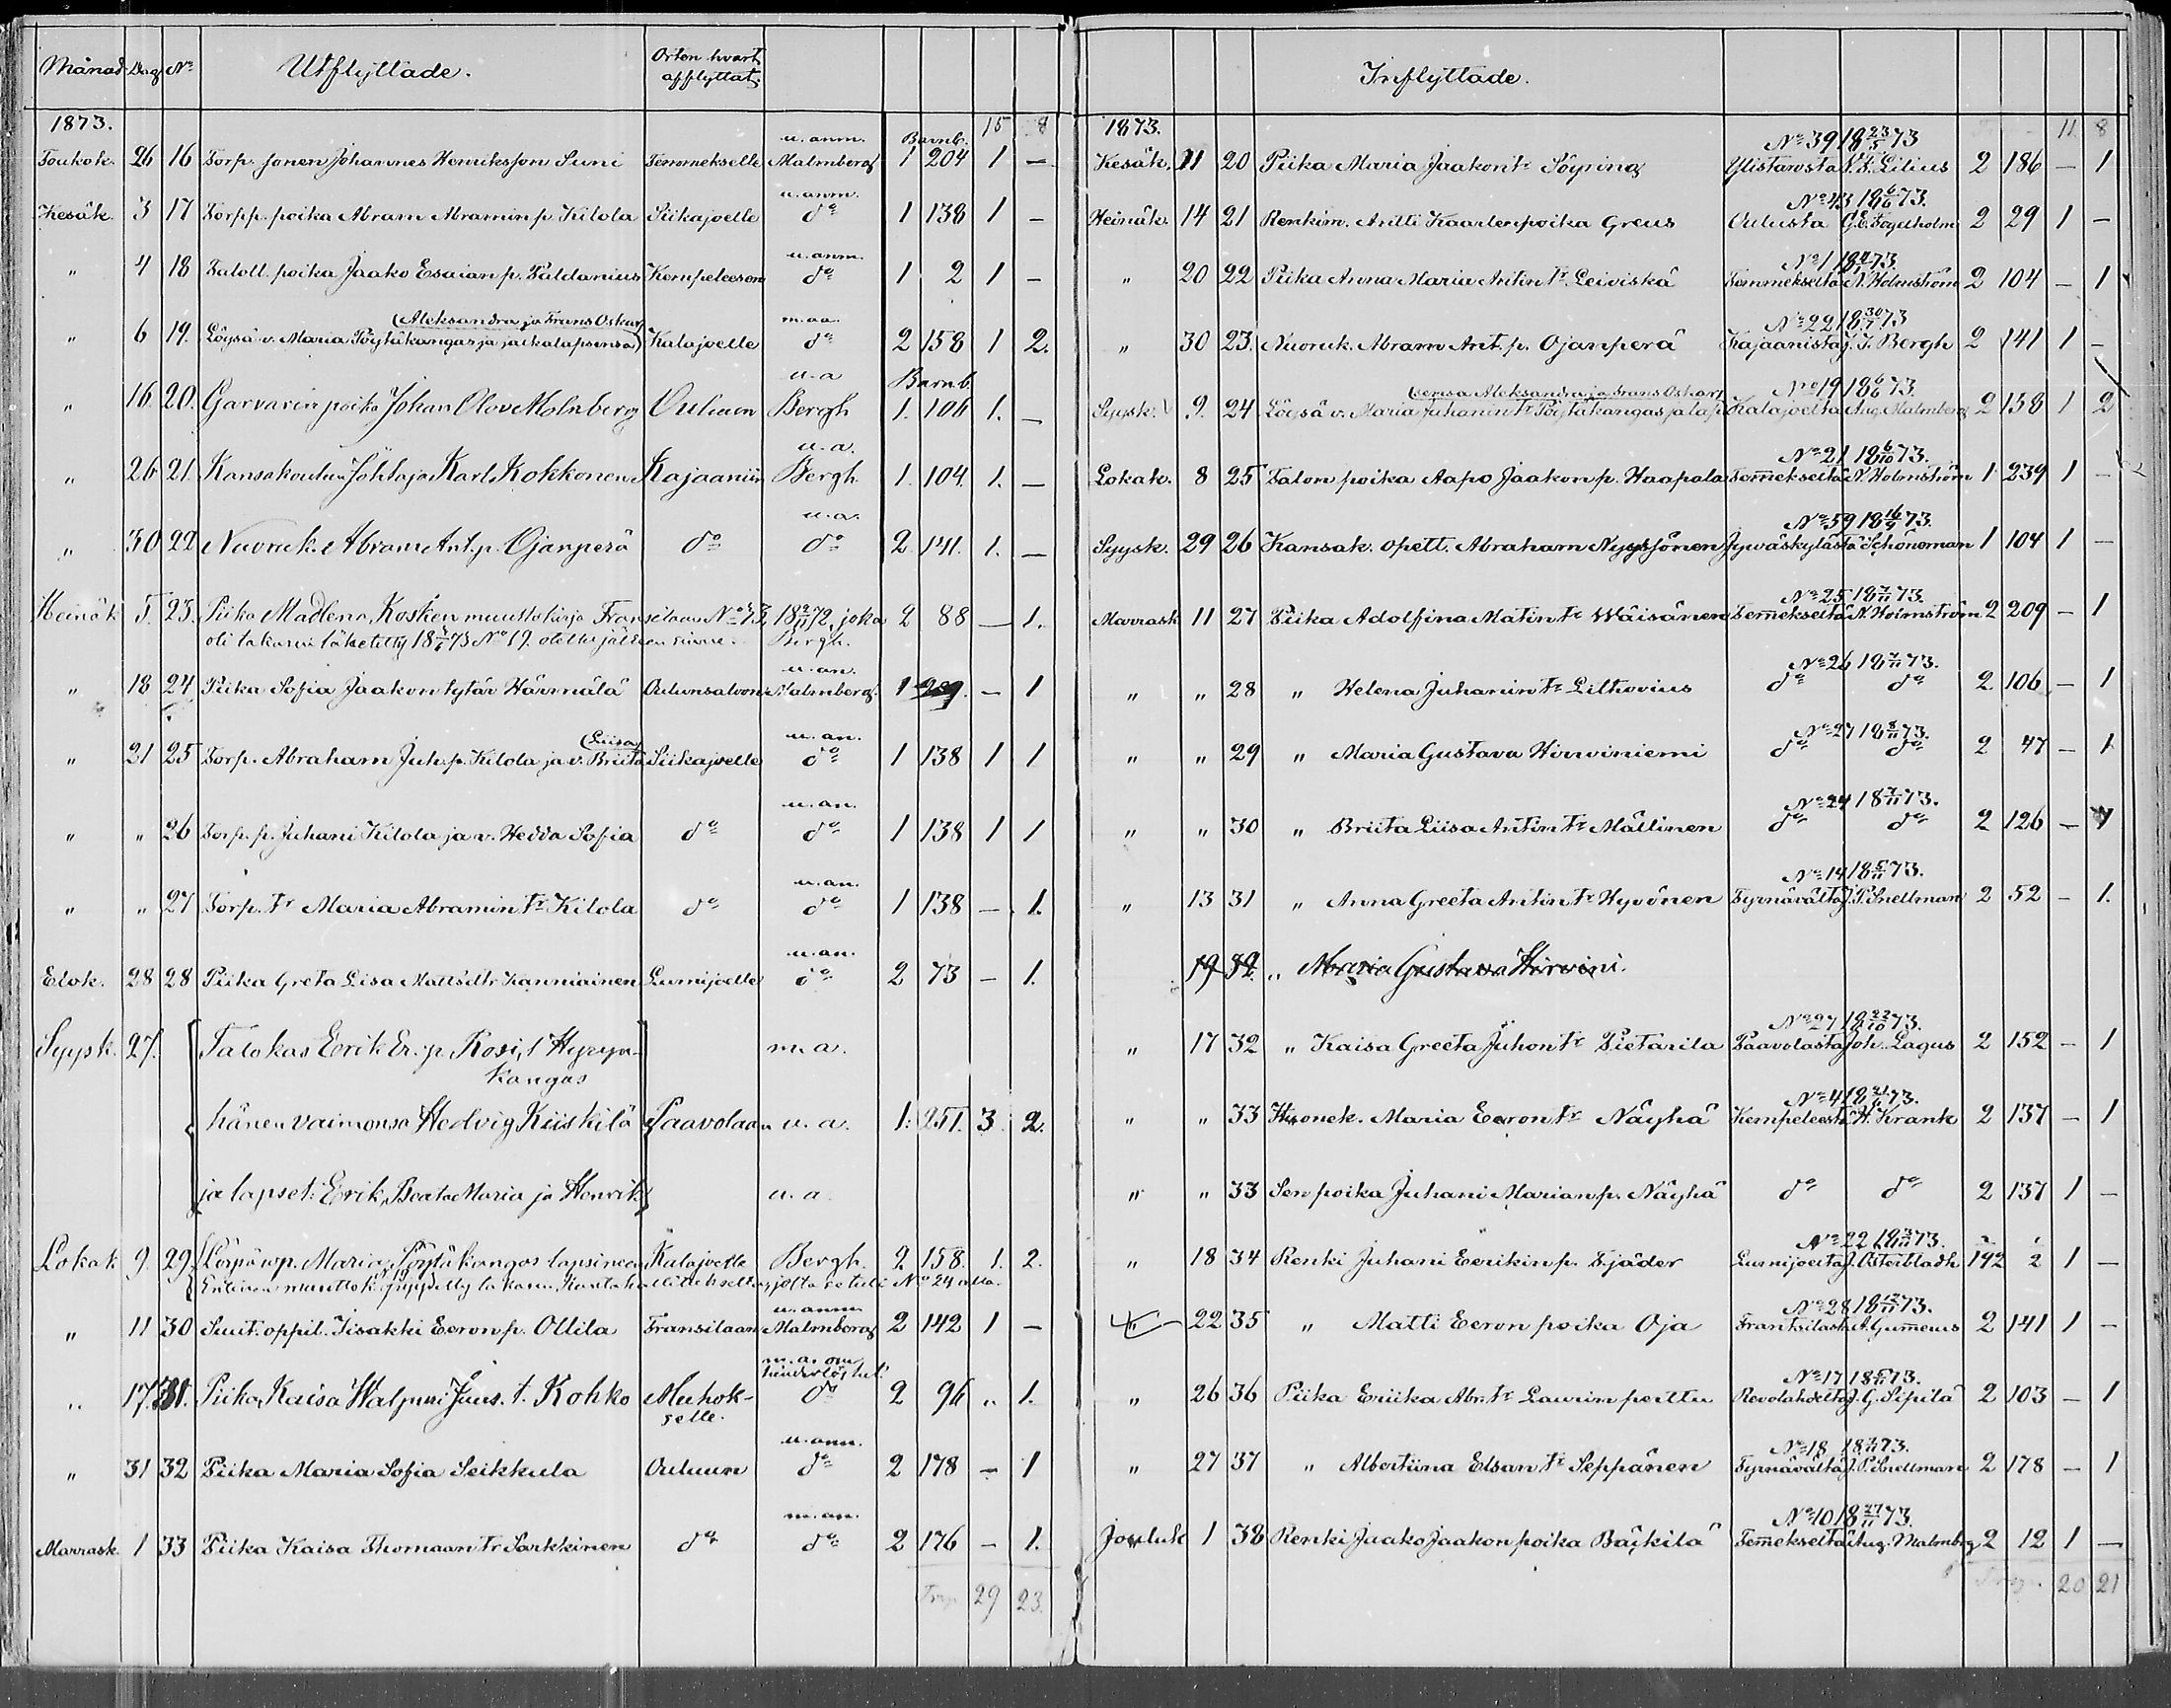 Månad Dag No Utflyttade. Orten hvart
afflyttat.
1873. 15 8
u. anm. Barnb.
Toukok. 26 16 Torp. sonen Johannes Henriksson Suni Temmekselle Malmberg 1 204 1 —
u. anm.
Kesäk. 3 17 Torpp. poika Abram Abramin p. Kilola Siikajoelle do 1 138 1 —
u. anm.
" 4 18 Taloll. poika Jaako Esaian p. Paldanius Kempeleesen do 1 2 1 —
(Aleksandra ja Frans Oskar) m. aa.
" 6 19. Löysä v. Maria Pöytäkangas ja jalkalapsensa Kalajoelle do 2 158 1 2.
u. a Barnb.
" 16 20. Garvarin poika Johan Olov Molnberg Ouluun Bergh 1. 106 1. —
u. a.
" 26 21. Kansakoulun Johtaja Karl Kokkonen Kajaaniin Bergh 1. 104. 1. —
u. a.
" 30 22 Nuoruk. Abram Ant. p. Ojanperä do do 2. 141. 1. —
Heinäk 5. 23. Piika Madlena Kosken muuttokirja Fransilaan No 73, 18 2/11 72, joka 2 88 — 1.
oli takasin lähetetty No 19. Bergh.
u. an.
" 18 24 Piika Sofia Jaakon tytär Härmälä Oulunsaloon Malmberg. 1 — 1
(Liisa) u. an.
" 21 25 Torp. Abraham Juh. p. Kilola ja v. Briita Siikajoelle do 1 138 1 1
u. an.
" " 26 Torp. p. Juhani Kilola ja v. Hedda Sofia do do 1 138 1 1
u. an.
" " 27 Torp. tr Maria Abramin tr Kilola do do 1 138 — 1.
u. an.
Elok. 28 28 Piika Greta Lisa Mattsdtr Kanniainen Lumijoelle do 2 73 — 1.
Syysk. 27. Talokas Eerik Er. p. Rosi, l Hyryn- m. a.
kangas
hänen vaimonsa Hedvig Kiiskilä Paavolaan u. a. 1. 251. 3. 2.
ja lapset: Erik, Beata Maria ja Henrik u. a.
Lokak 9. 29. Löysä vp. Maria Pöytäkangas lapsineen Kalajoelle Bergh. 2 158. 1. 2.
Entinen muuttok. No 24 alla.
u. anm.
" 11 30 Suut. oppil. Iisakki Eeron p. Ollila Fransilaan Malmberg 2 142 1 —
m. a. om
hinderlöshet
" 17. 31. Piika Kaisa Walpuri Juus. t. Kohko Muhok- do 2 96 " 1.
selle.
u. ann.
" 31 32 Piika Maria Sofia Seikkula Ouluun do 2 178 — 1
m. an.
Marrask. 1 33 Piika Kaisa Thomaan tr Sarkkinen do do 2 176 — 1.
Trsp. 29 23.
Inflyttade.
1873. 11 8
No 39 18 23/5 73
Kesäk. 11 20 Piika Maria Jaakon tr Söyring Ylistarosta N. F. Lilius 2 186 — 1
No 43 18 6/6 73.
Heinäk. 14 21 Renkim. Antti Kaarlenpoika Greus Oulusta G. E. Fogelholm 2 29 1 —
No 1 73.
" 20 22 Piika Anna Maria Antin tr Leiviskä Temmekseltä N. Holmström 2 104 — 1
No 22 18 30/7 73
" 30 23. Nuoruk. Abram Ant. p. Ojanperä Kajaanista J. J. Bergh 2 141 1 —
(sensa Aleksandra ja Frans Oskar) No 19 18 6/6 73.
Syysk. 9. 24 Löysä v. Maria Juhanin tr Pöytäkangas ja lap Kalajoelta Aug. Malmberg 2 158 1 2
No 21 18 6/10 73.
Lokak. 8 25 Talon poika Aapo Jaakon p. Haapala Temmekseltä N. Holmström 1 239 1 —
No 59 18 16/9 73.
Syysk. 29 26 Kansak. opett. Abraham Nyyssönen Jywäskylästä Schöneman 1 104 1 —
No 25 18 7/11 73.
Marrask 11 27 Piika Adolfina Matin tr Wäisänen Temmekseltä N. Holmström 2 209 — 1
No 26 18 7/11 73.
" " 28 " Helena Juhanin tr Lithovius do do 2 106 — 1
No 27 18 8/11 73.
" " 29 " Maria Gustava Hirwiniemi do do 2 47 — 1
No 24 18 7/11 73.
" " 30 " Briita Liisa Antin tr Mällinen do do 2 126 — 1
No 14 73.
" 13 31 " Anna Greeta Antin tr Hyvönen Tyrnävältä J. P. Snellman 2 52 — 1.
19 32. " Maria Gustava Hirvini.
No 27 18 22/10 73.
" 17 32 " Kaisa Greeta Juhon tr Pietarila Paavolasta Joh. Lagus 2 152 — 1
No 4 73.
" " 33 Huonek. Maria Eeron tr Näyhä Kempeleestä H. Krank 2 137 — 1
" " 33 Sen poika Juhani Marian p. Näyhä do do 2 137 1 —
No 22 73.
" 18 34 Renki Juhani Eerikin p. Sjäder Lumijoelta J. Österbladh 192 2 1 —
No 28 73.
22 35 " Matti Eeron poika Oja Frantsilasta A. Gummerus 2 141 1 —
No 17 73.
" 26 36 Piika Eriika Abr. tr Laurinperttu Revolahdelta J. G. Sipilä 2 103 — 1
No 18 73.
" 27 37 " Albertiina Elsan tr Seppänen Tyrnävältä J. P. Snellman 2 178 — 1
No 10 18 27/11 73.
Jouluk 1 38 Renki Jaako Jaakon poika Bäckilä Temmekseltä Aug. Malmbrg 2 12 1 —
Trsp. 20 21